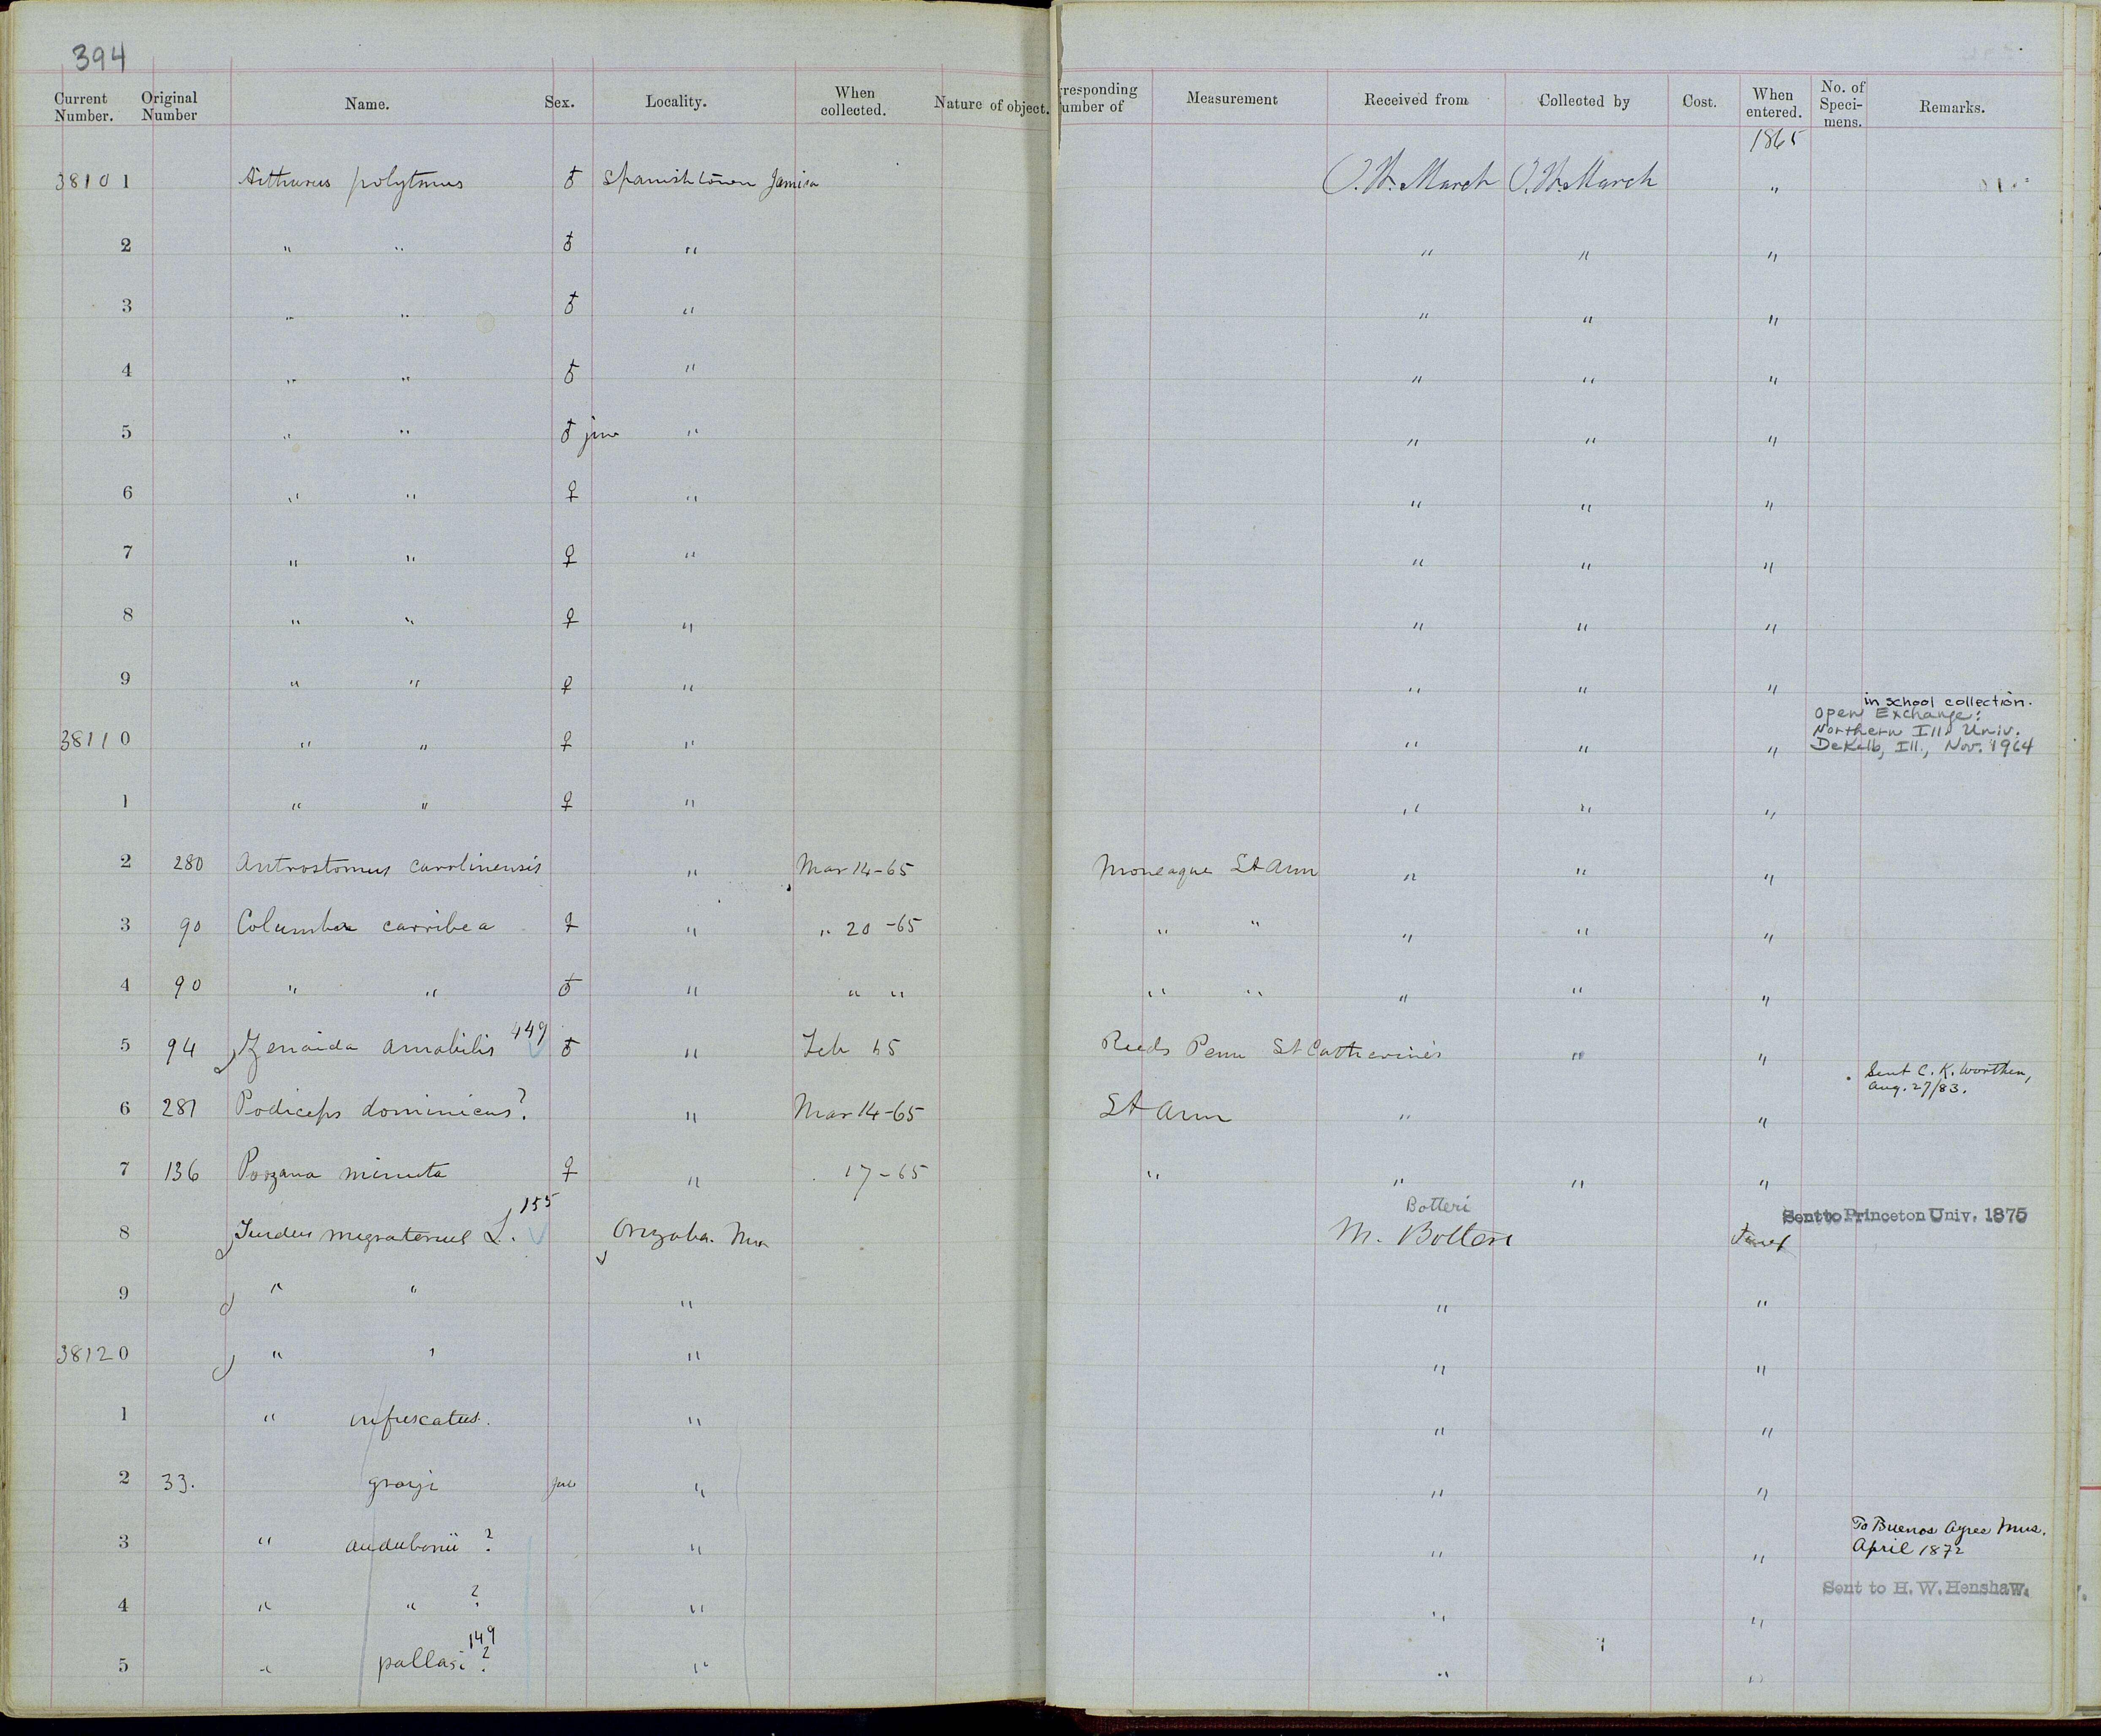 394
Current Number. Original Number Name. Sex. Locality. When collected. Nature of object. rresponding umber of Measurement Received from Collected by Cost. When entered. No. of Speci-mens. Remarks.
1865
38101 Aithurus polytmus ♂ Spanishtown Jamica O.W. March O.W. March "
2 " " ♂ " " " "
3 " " ♂ " " " "
4 " " ♂ " " " "
5 " " ♂ juv " " " "
6 " " ♀ " " " "
7 " " ♀ " " " "
8 " " ♀ " " " "
9 " " ♀ " " " "
in school collection.
Open Exchange:
Northern Ill. Univ.
38110 " " ♀ " " " " DeKalb, Ill., Nov. 1964
1 " " ♀ " " " "
2 280 Antrostomus carolinensis " Mar 14-65 Moneague St Ann " " "
3 90 Columba carribea ♀ " " 20-65 " " " " "
4 90 " " ♂ " " " " " " " "
5 94 Zenaida amabilis 449 ♂ " Feb 65 Reeds Penn St Catherines " "
Sent C. K. Worthen,
Aug. 27/83.
6 281 Podiceps dominicus? " Mar 14-65 St Ann " "
7 136 Porzana minuta ♀ " 17-65 " " " "
155 Botteri Sent to Princeton Univ. 1875
8 Turdus migratorius L. Orizaba. Mex M. Botteri
9 " " " " "
38120 " " " " "
1 " infuscatus. " " "
2 33. grayi juv " " "
To Buenos Ayres Mus.
3 " audubonii ? " " " April 1872
Sent to H. W. Henshaw.
4 " " ? " " "
149
5 " pallasi ? " " "